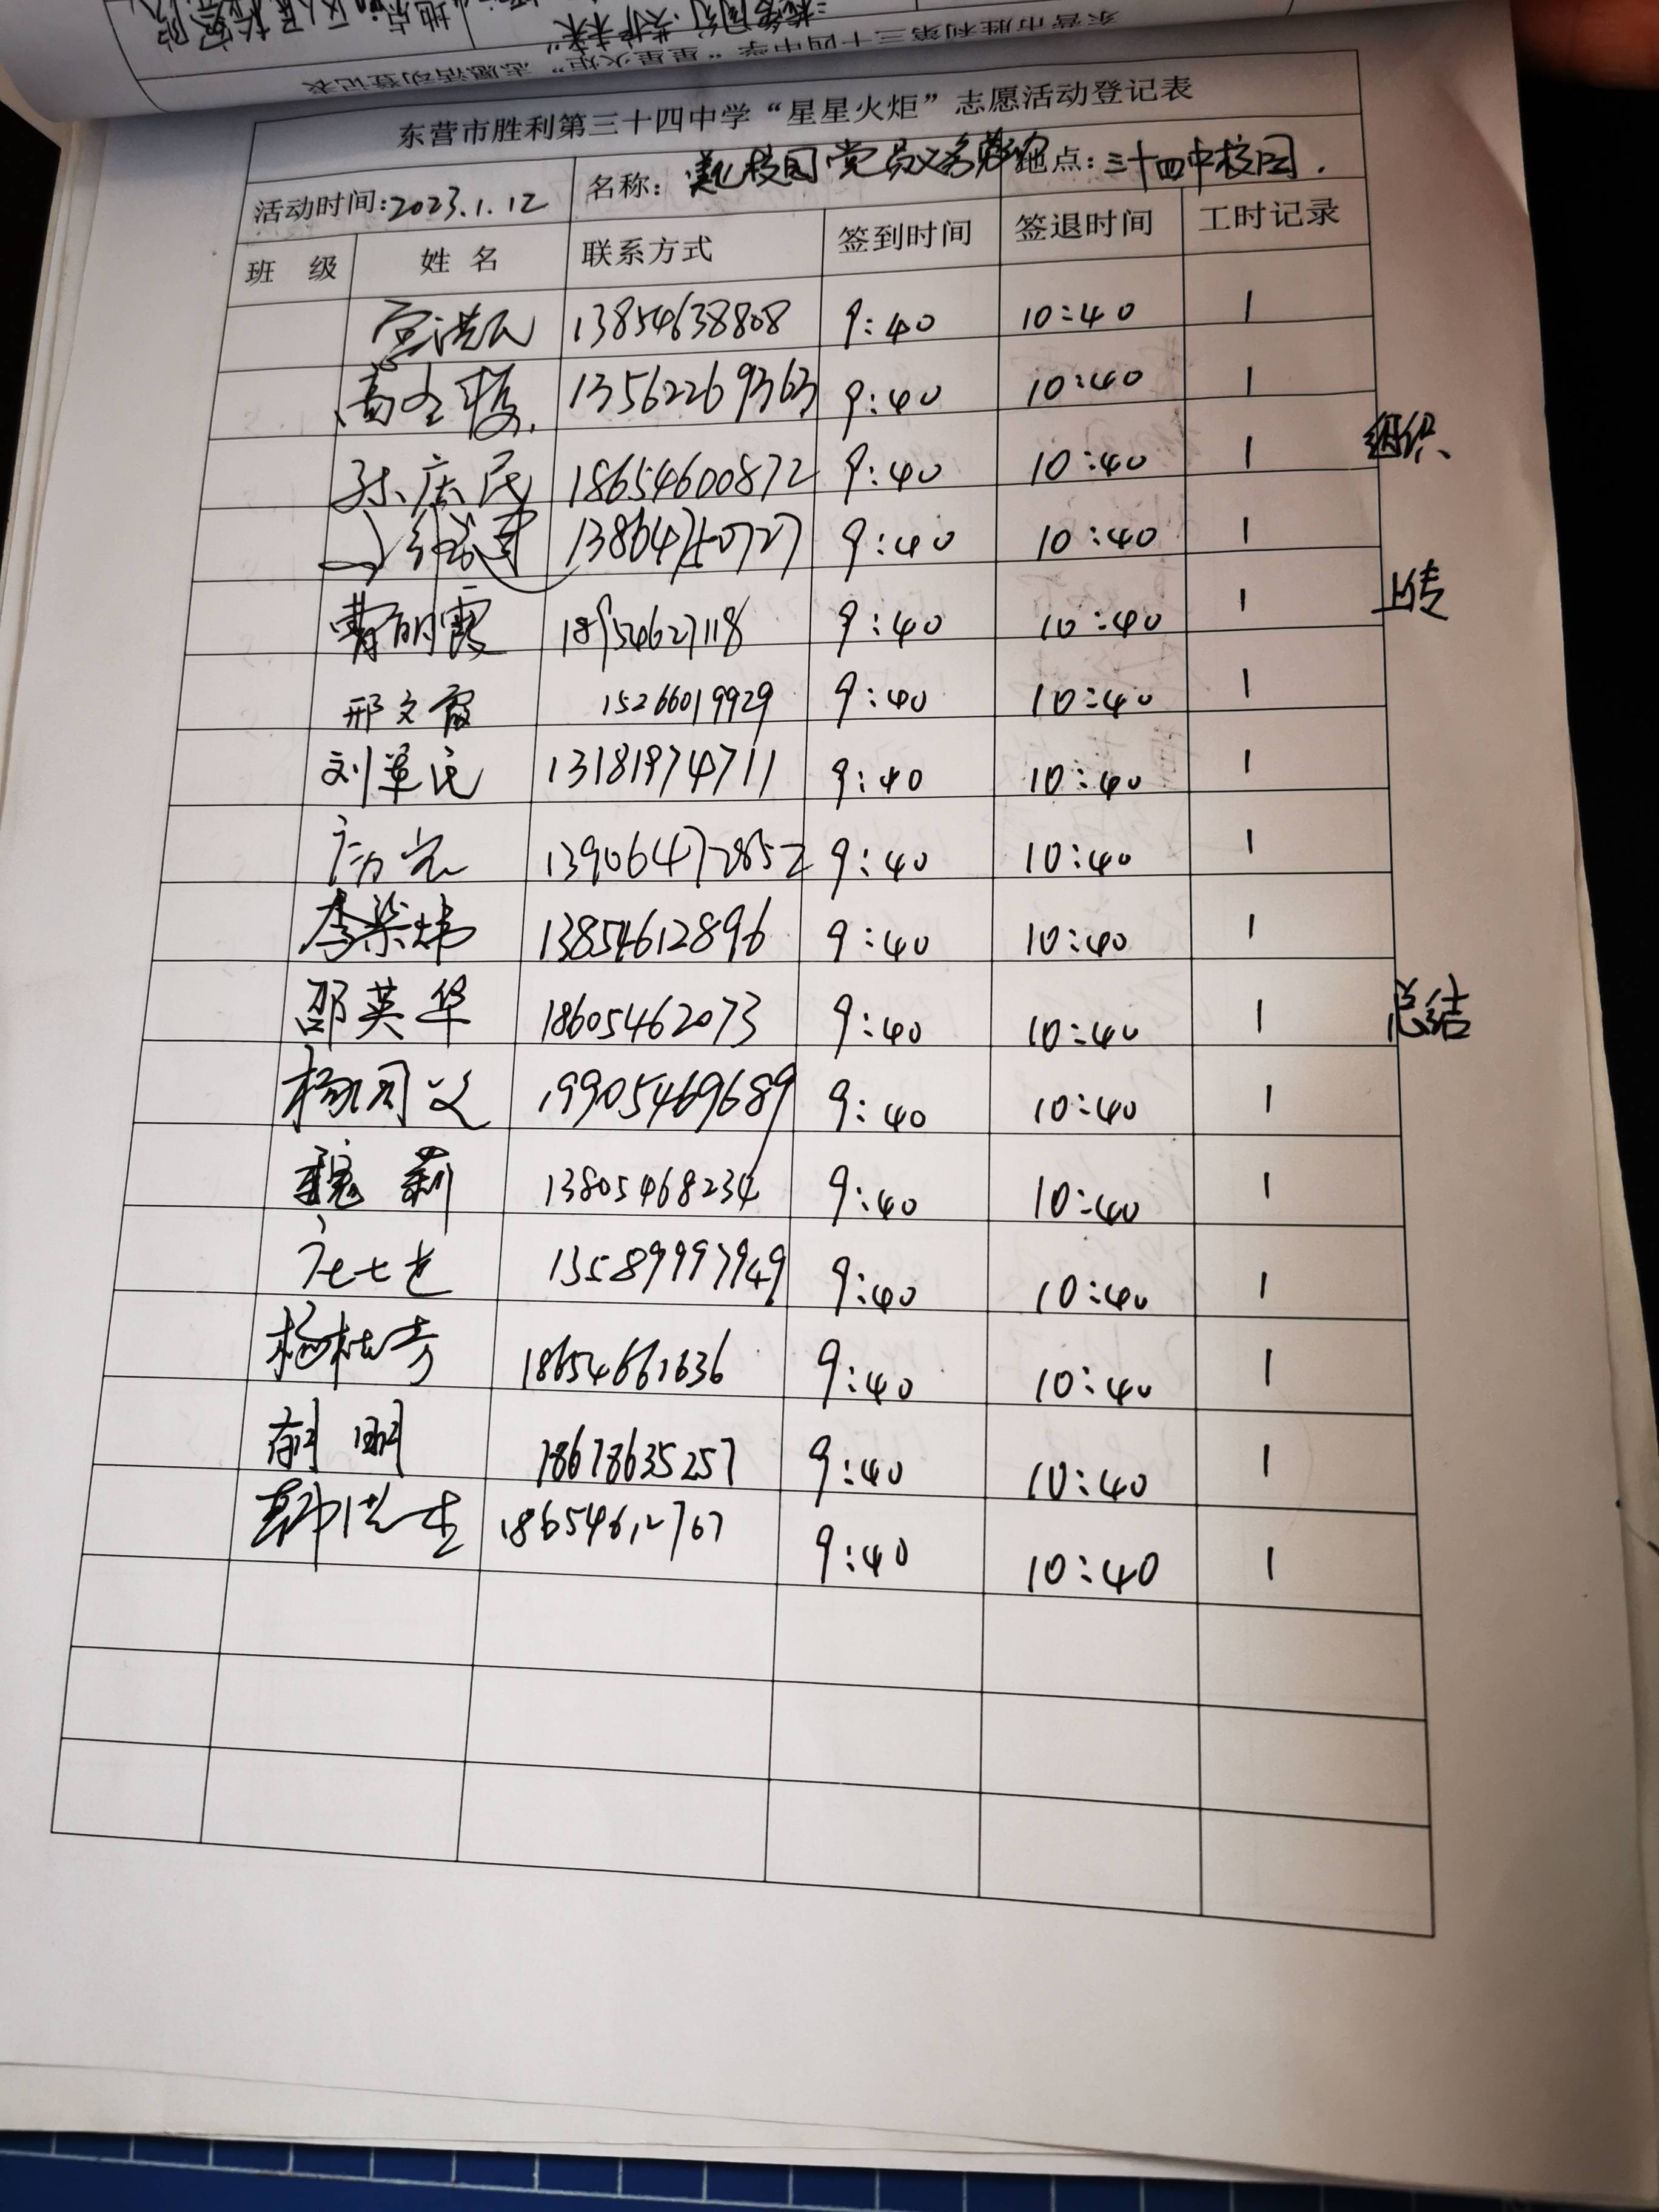 东营市胜利第三十四中学“星星火炬”志愿活动登记表
东营市胜利第三十四中学“星星火炬”志愿活动登记表
活动时间:2023.1.12 名称: 美化校园党员义务劳动 地点: 三十四中校园.
班 级 姓 名 联系方式 签到时间 签退时间 工时记录
13854638808 9:40 10:40 1
13562269363 9:40 10:40 1 组织、
孙庆民 18654600872 9:40 10:40 1
9:40 10:40 1
曹明霞 18954627118 9:40 10:40 1 上传
邢文霞 15266019929 9:40 10:40 1
刘军民 13181974711 9:40 10:40 1
13906472852 9:40 10:40 1
李荣炜 13854612896 9:40 10:40 1
邵英华 18605462073 9:40 10:40 1 总结
杨同义 19905469689 9:40 10:40 1
魏 莉 13805468234 9:40 10:40 1
13589997949 9:40 10:40 1
杨桂芳 18654661636 9:40 10:40 1
18678635257 9:40 10:40 1
18654612767 9:40 10:40 1